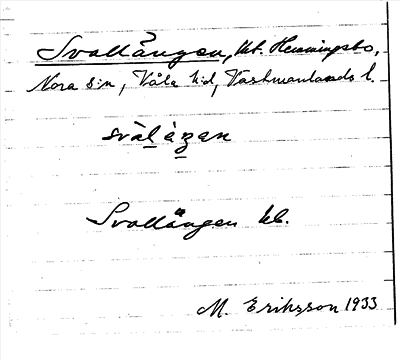 Svallängen, hl. Hemmingsbo,
Nora s:n, Våla hd, Västmanlands l.
sválàŋan
Svallängen hl.
M. Eriksson 1933